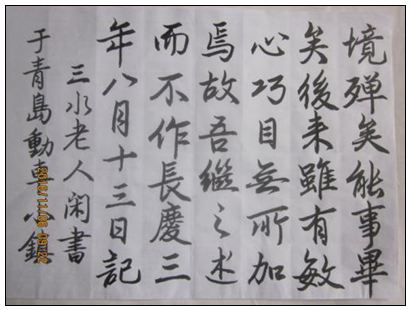 境殫矣能事畢
矣後来雖有敏
心巧目無所加
焉故吾継之述
而不作長慶三
年八月十三日記
三水老人閑書
于青島動車小鎮